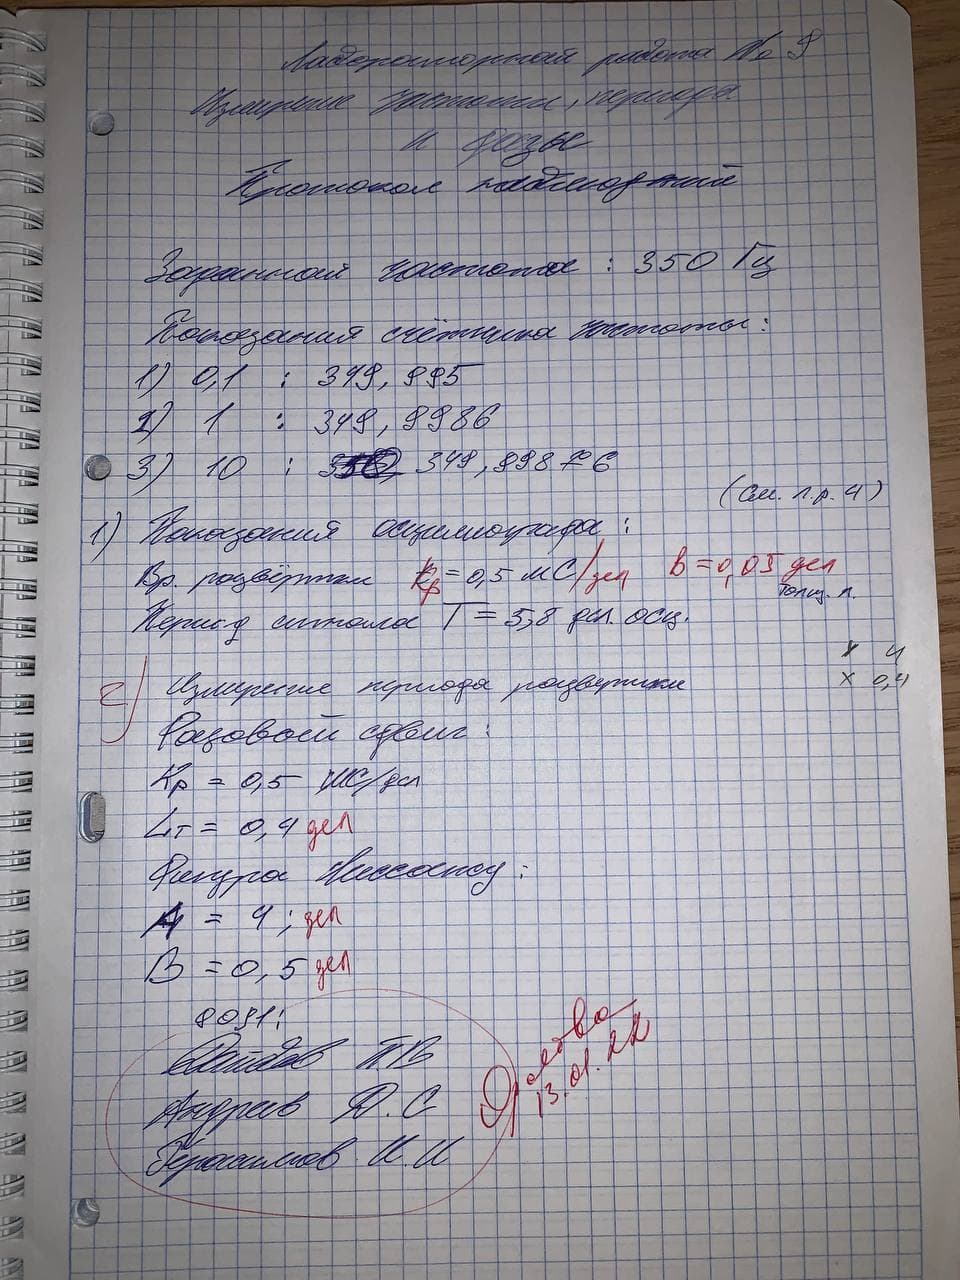 Лабораторная работа № 9
Измерение частоты, периода
и фазы
Протокол наблюдений
Заданная частота : 350 Гц
Показания счётчика частоты :
1) 0,1 : 349,995
2) 1 : 349,9986
3) 10 : 349,99876
(см. л.р. 4)
1) Показания осциллографа :
Вр. развёртки Kр = 0,5 мс/дел B = 0,05 дел
толщ. л.
Период сигнала T = 5,8 дел. осц.
x 4
x 0,4
2) Измерение периода развертки
Фазовый сдвиг :
Kр = 0,5 мс/дел
Lт = 0,4 дел
Фигура Лиссажу :
A = 4 ; дел
B = 0,5 дел
8091 :
ТВ
Андреев Д.С
Герасимов И.И
13.01.22